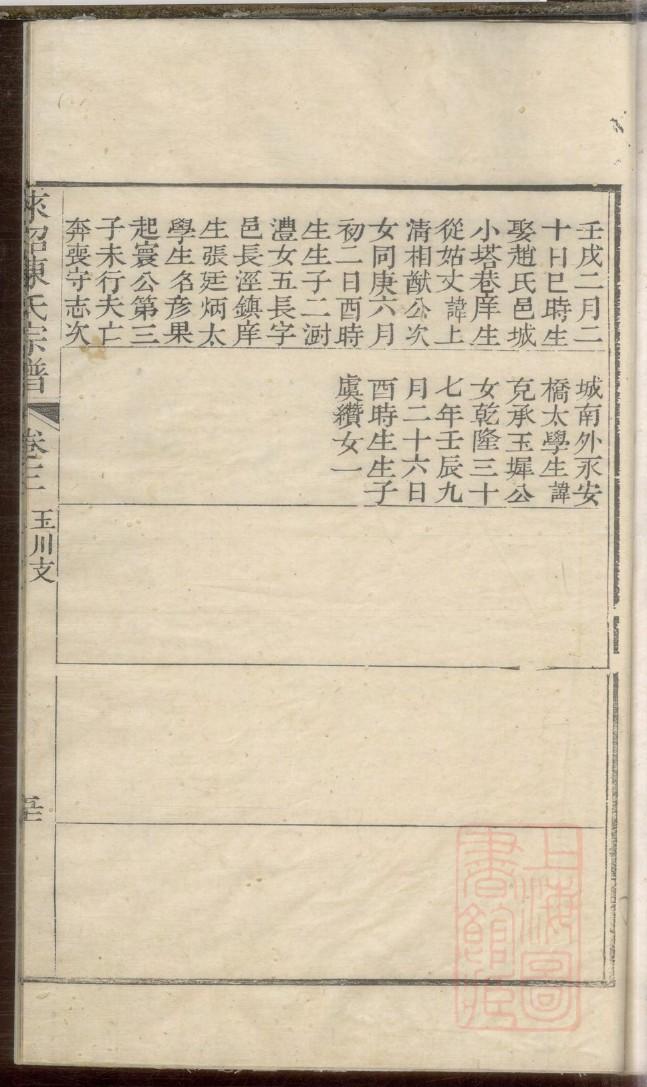 壬戌二月二
十日巳時生
娶趙氏邑城
小塔巷庠生
從姑丈諱上
清相猷公次
女同庚六月
初二日酉時
生生子二澍
澧女五長字
邑長涇鎮庠
生張廷炳太
學生名彥果
起寰公第三
子未行夫亡
奔喪守志次
城南外永安
橋太學生諱
克承玉墀公
女乾隆三十
七年壬辰九
月二十六日
酉時生生子
虞纘女一
陳氏宗譜
卷三
玉川支
上海圖
書館藏